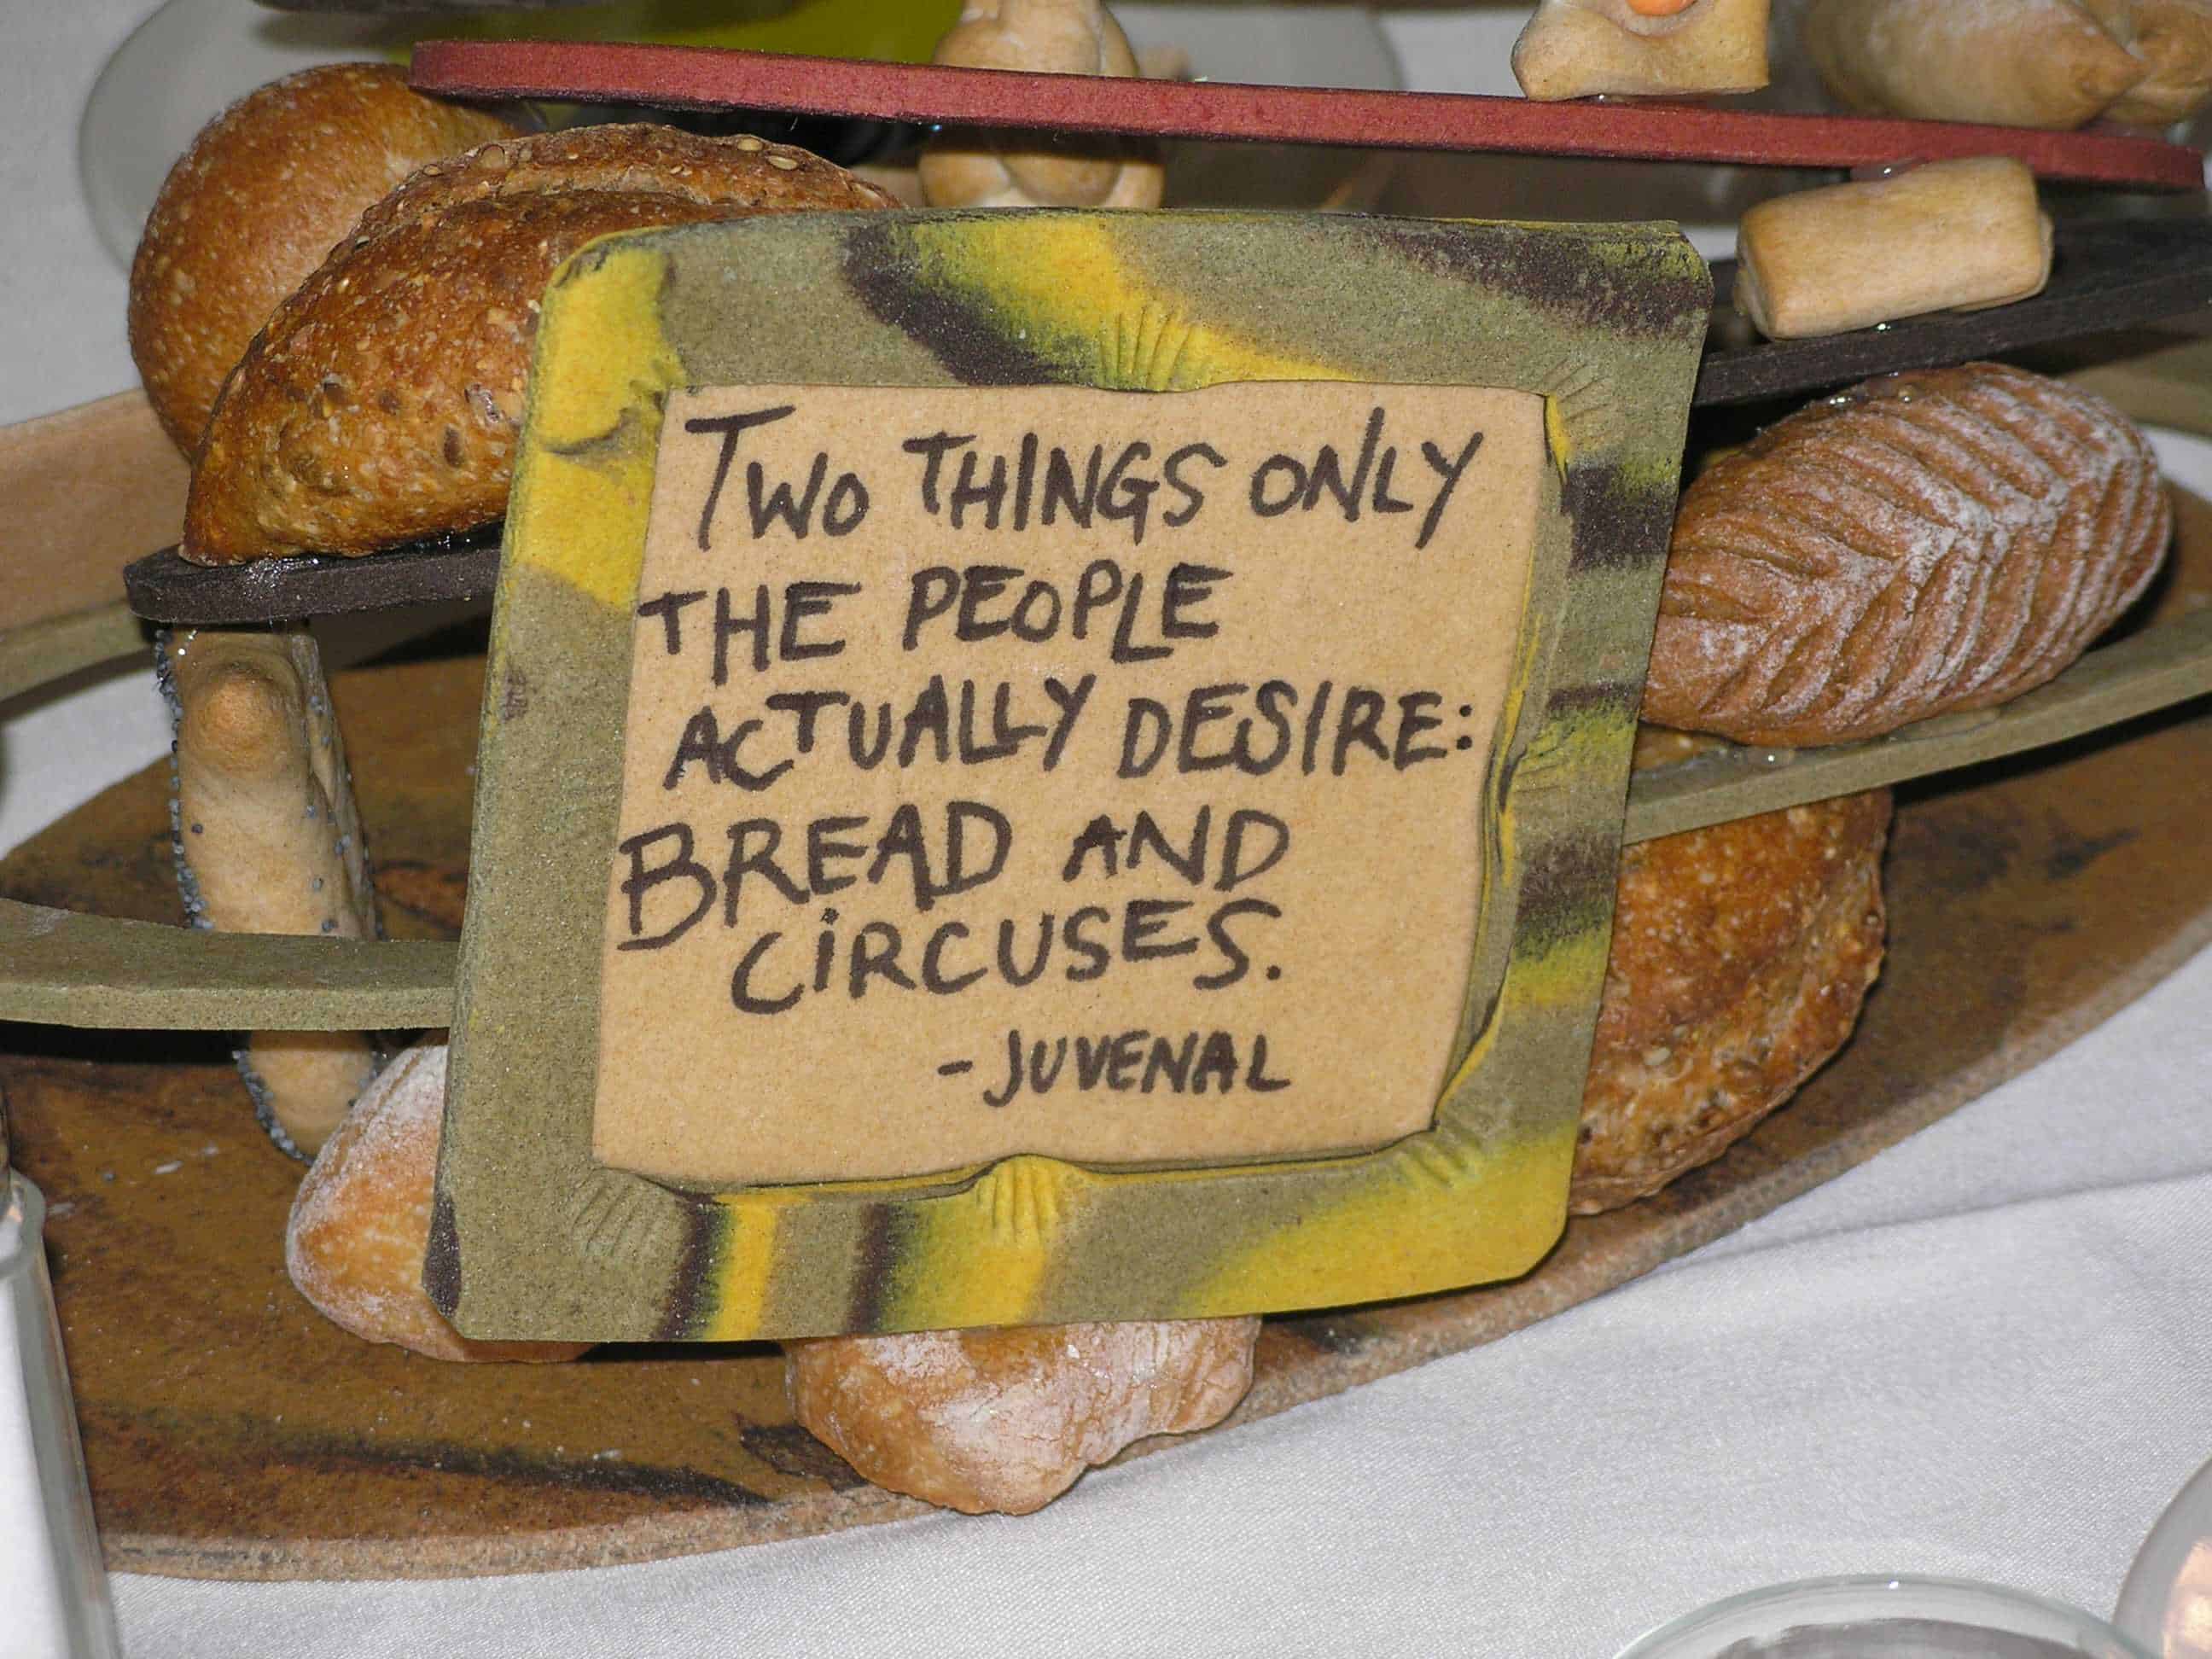 TWO THINGS ONLY
THE PEOPLE
ACTUALLY DESIRE:
BREAD AND
CiRCUSES.
-JUVENAL